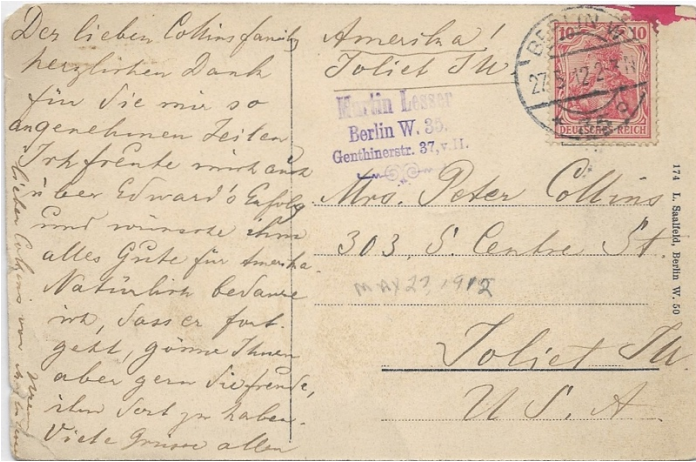 Der lieben Collinsfamily
herzlichen Dank
für die mir so
angenehmen Zeilen
Ich freute mich auch
über Edward's Erfolg
und wünsche ihm
alles Gute für Amerika.
Natürlich bedaure
ich, dass er fort
geht, gönne Ihnen
aber gern die Freude,
ihn dort zu haben.
Viele Grüsse allen
lieben Collins von
Amerika!
Joliet Ill
BERLIN W
27.5.12.2-3 N
* 35 a
10 10
DEUTSCHES REICH
Martin Lesser
Berlin W. 35.
Genthinerstr. 37, v. II.
Mrs. Peter Collins
303, S. Centre St.
MAY 27, 1912
Joliet Ill.
U. S. A
174 L. Saalfeld, Berlin W. 50